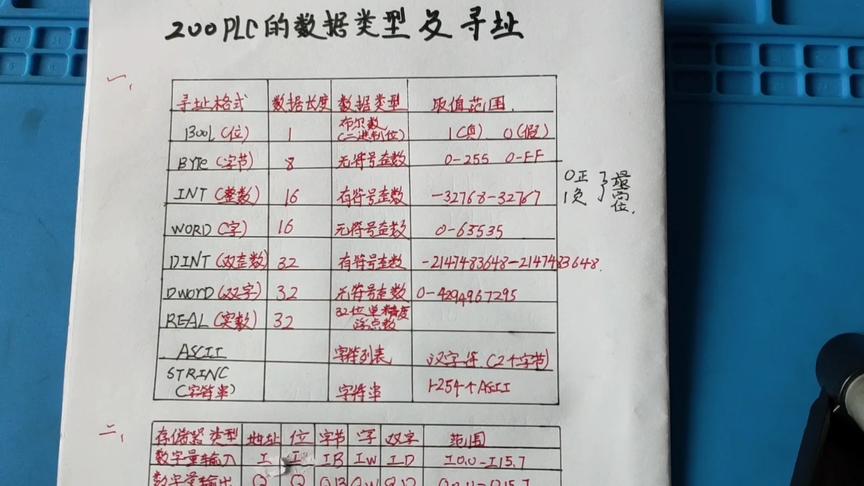 200PLC的数据类型及寻址
一、
寻址格式 数据长度 数据类型 取值范围.
BOOL(位) 1 布尔数(二进制位) 1(真) 0(假)
BYTE(字节) 8 无符号整数 0-255 0-FF
INT(整数) 16 有符号整数 -32768-32767
0正 1负 最高位.
WORD(字) 16 无符号整数 0-63535
DINT(双整数) 32 有符号整数 -2147483648-2147483648.
DWORD(双字) 32 无符号整数 0-4294967295
REAL(实数) 32 32位单精度浮点数
ASCII 字符列表 汉字符(2个字节)
STRINC(字符串) 字符串 1-254个ASCII
二、
存储器类型 地址 位 字节 字 双字 范围
数字量输入 I I IB IW ID I0.0-I15.7
数字量输出 Q Q QB QW QD Q0.0-Q15.7